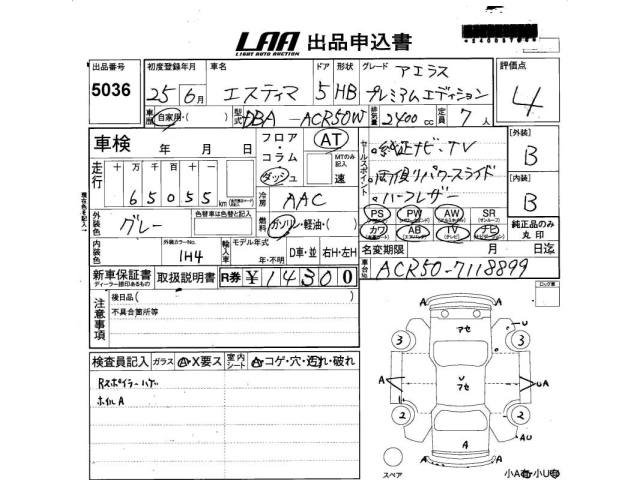 LAA 出品申込書
LIGHT AUTO AUCTION
出品番号 初度登録年月 車名 ドア 形状 グレード アエラス 評価点
5036 25年 6月 エスティマ 5 HB プレミアムエディション 4
車歴 自家用・( ) 型式 DBA - ACR50W 排気量 2400 cc 定員 7 人
車検 年 月 日 フロア・コラム ダッシュ AT MTのみ記入 速
セールスポイント
・純正ナビ、TV
・両側パワースライド
・ハーフレザー
[外装] B
[内装] B
走行 十万 万 千 百 十 一
6 5 0 5 5 km
冷房 AAC
現在色を記入
外装色 グレー 色替車は色替と記入
燃料 ガソリン・軽油・( )
PS PW AW SR
(サンルーフ)
カワ AB TV ナビ
純正品のみ丸印
内装色 外装カラーNo. 1H4 輸入車 モデル年式 年・不明 D車・並 右H・左H
名変期限 月 日迄
新車保証書 取扱説明書 R券 ¥14300
ディーラー捺印あるもの
車台No. ACR50-7118899
注意事項
後日品 ( )
不具合箇所等
ロック室
検査員記入 ガラス A・X要ス 室内シート A・コゲ・穴・汚れ・破れ
Rスポイラーハゲ
ホイルA
A A U
アセ
3 3
A V UA
アセ
2 2
AU
A
A A
スペア
小A 小U